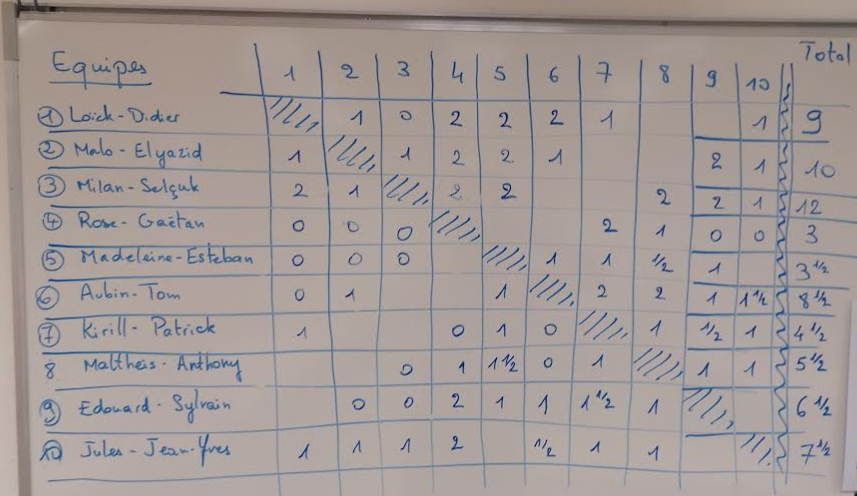 Equipes 1 2 3 4 5 6 7 8 9 10 Total
① Loïck-Didier 1 0 2 2 2 1 1 9
② Malo-Elyazid 1 1 2 2 1 2 1 10
③ Milan-Selçuk 2 1 2 2 2 2 1 12
④ Rose-Gaëtan 0 0 0 2 1 0 0 3
⑤ Madeleine-Esteban 0 0 0 1 1 1/2 1 3 1/2
⑥ Aubin-Tom 0 1 1 2 2 1 1 1/2 8 1/2
⑦ Kirill-Patrick 1 0 1 0 1 1/2 1 4 1/2
8 Mattheis-Anthony 0 1 1 1/2 0 1 1 1 5 1/2
⑨ Edouard-Sylvain 0 0 2 1 1 1 1/2 1 6 1/2
⑩ Jules-Jean-Yves 1 1 1 2 1/2 1 1 7 1/2